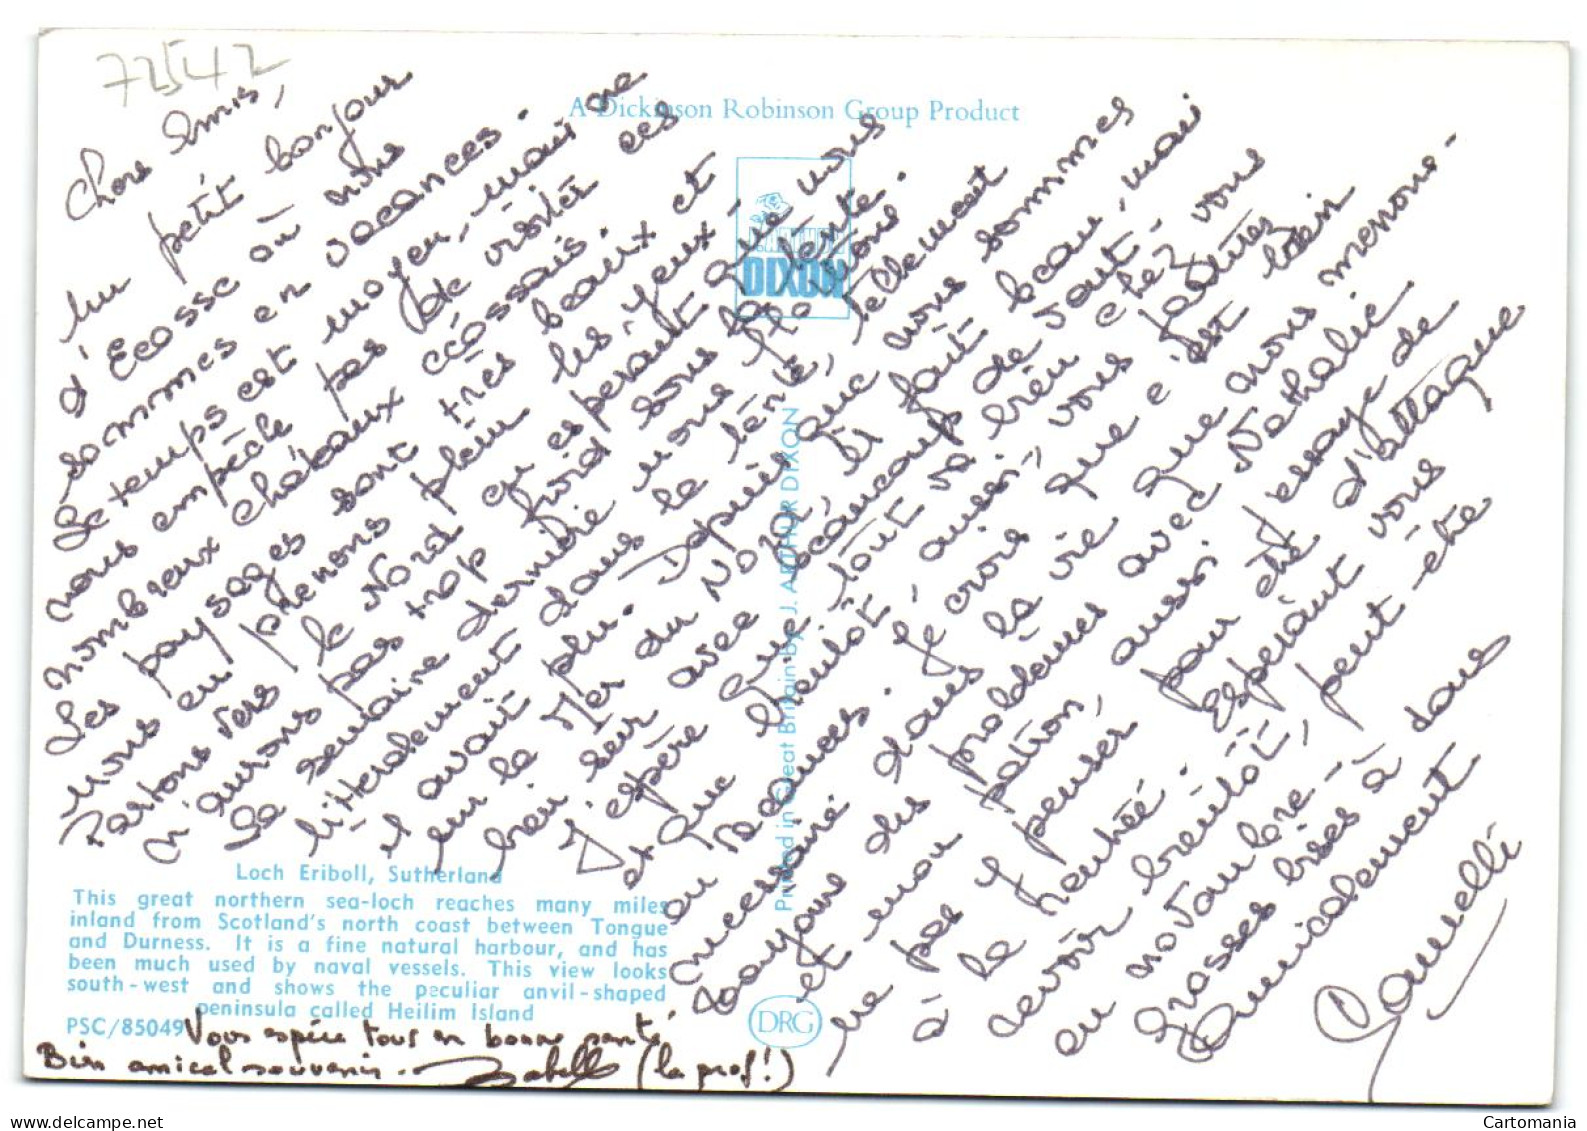 72542
A Dickinson Robinson Group Product
ARTHUR
DIXON
Printed in Great Britain by J. ARTHUR DIXON
Chers Amis,
Un petit bonjour
d'Ecosse où nous
sommes en vacances.
Le temps est moyen, mais ne
nous empêche pas de visiter ces
nombreux châteaux écossais.
Les paysages sont très beaux et
nous en prenons plein les yeux.
Partons vers le Nord en espérant que nous
n'aurons pas trop froid sous la tente.
La semaine dernière nous flottions
littéralement dans la tente, tellement
il avait plu. Depuis que nous sommes
sur la Mer du Nord, il fait beau, mais
bien sûr avec beaucoup de vent.
J'espère que tout va bien chez vous
et que bientôt, vous aussi, vous partirez
en vacances. Je crois que c'est bien
nécessaire dans la vie que nous menons.
toujours des problèmes avec Nathalie
et mon patron, aussi j'essaye de
ne pas y penser pour être d'attaque
à la rentrée. Espérant vous
revoir bientôt, peut-être
en novembre.
Grosses bises à tous
Amicalement
Loch Eriboll, Sutherland
This great northern sea-loch reaches many miles
inland from Scotland's north coast between Tongue
and Durness. It is a fine natural harbour, and has
been much used by naval vessels. This view looks
south-west and shows the peculiar anvil-shaped
peninsula called Heilim Island
PSC/85049
DRG
Vous espère tous en bonne santé
Bien amical souvenir. Isabelle (la prof!)
Cartomania